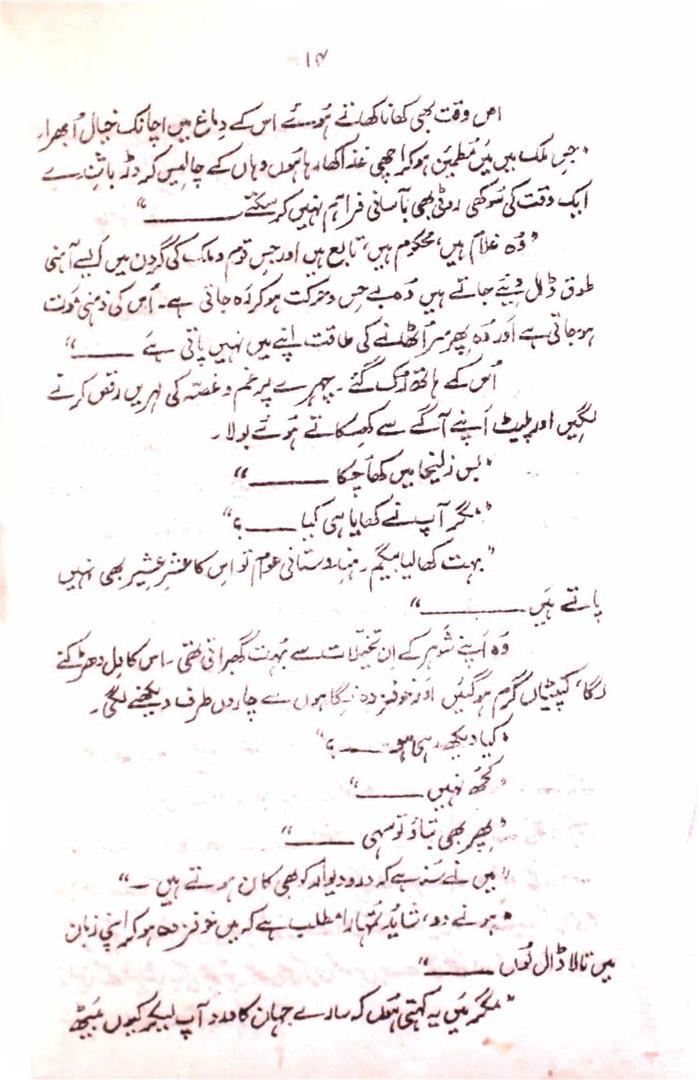 ۱۴
اس وقت بھی کھانا کھاتے ہوئے اس کے دماغ میں اچانک خیال اُبھرا۔
"جس ملک میں مَیں مطمئن ہو کر اچھی غذا کھا رہا ہوں وہاں کے چالیس کروڑ باشندے
ایک وقت کی سُوکھی روٹی بھی بآسانی فراہم نہیں کر سکتے ـــــــ"
"وُہ غلام ہیں، محکوم ہیں، تابع ہیں اور جس قوم و ملک کی گردن میں ایسے آہنی
طوق ڈال دیئے جاتے ہیں وُہ بے حِس و حرکت ہو کر رَہ جاتی ہے۔ اُس کی ذہنی مَوت
ہو جاتی ہے اَور وُہ پھر سر اُٹھانے کی طاقت اپنے میں نہیں پاتی ہے ـــــــ"
اُس کے ہاتھ رُک گئے۔ چہرے پر غم و غصّہ کی لہریں رقص کرنے
لگیں اور پلیٹ اَپنے آگے سے کھسکاتے ہوئے بولا۔
"بس زلیخا میں کھا چُکا ـــــــ"
"مگر آپ نے کھایا ہی کیا ـــــــ؟"
"بہت کھا لیا بیگم۔ ہندوستانی عوام تو اِس کا عشرِ عشیر بھی نہیں
پاتے ہیں ـــــــ"
وُہ اَپنے شوہر کے ان تخیّلات سے بہُت گھبراتی تھی۔ اس کا دِل دھڑکنے
لگا، کنپٹیاں گرم ہو گئیں اور خوفزدہ نگاہوں سے چاروں طرف دیکھنے لگی۔
"کیا دیکھ رہی ہو ـــــــ؟"
"کچھ نہیں ـــــــ"
"پھر بھی بتاؤ تو سہی ـــــــ"
"میں نے سُنا ہے کہ در و دیوار کو بھی کان ہوتے ہیں ـ"
"ہونے دو، شاید تمہارا مطلب ہے کہ میں خوفزدہ ہو کر اپنی زبان
میں تالا ڈال لُوں ـــــــ"
"مگر مَیں یہ کہتی ہُوں کہ سارے جہان کا درد آپ لیکر کیوں بَیٹھ